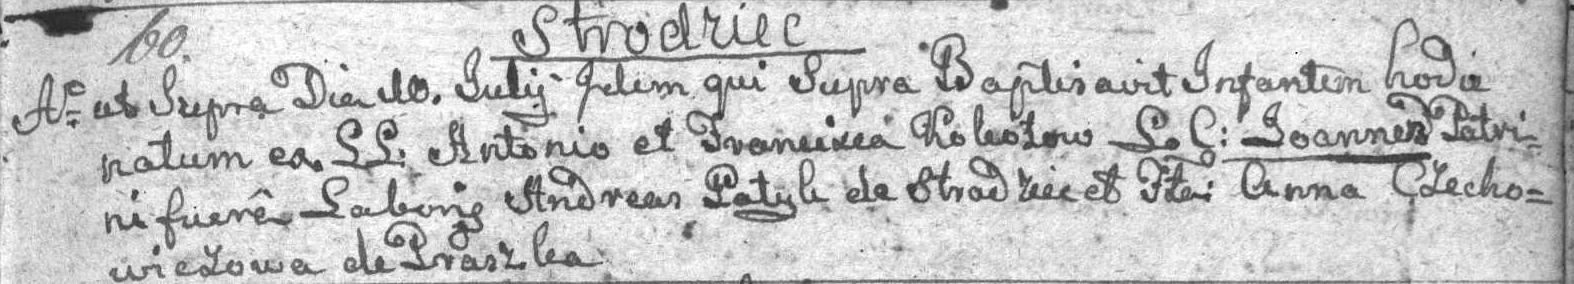 60. Strodziec
Ao ut Supra Die 10. Julij Idem qui Supra Baptisavit Infantem hodie
natum ex LL: Antonio et Francisca L. C: Joannes Patri-
ni fuere Labor: Andreas Patyk de Stradziec et Anna Czecho=
wiczowa de Praszka